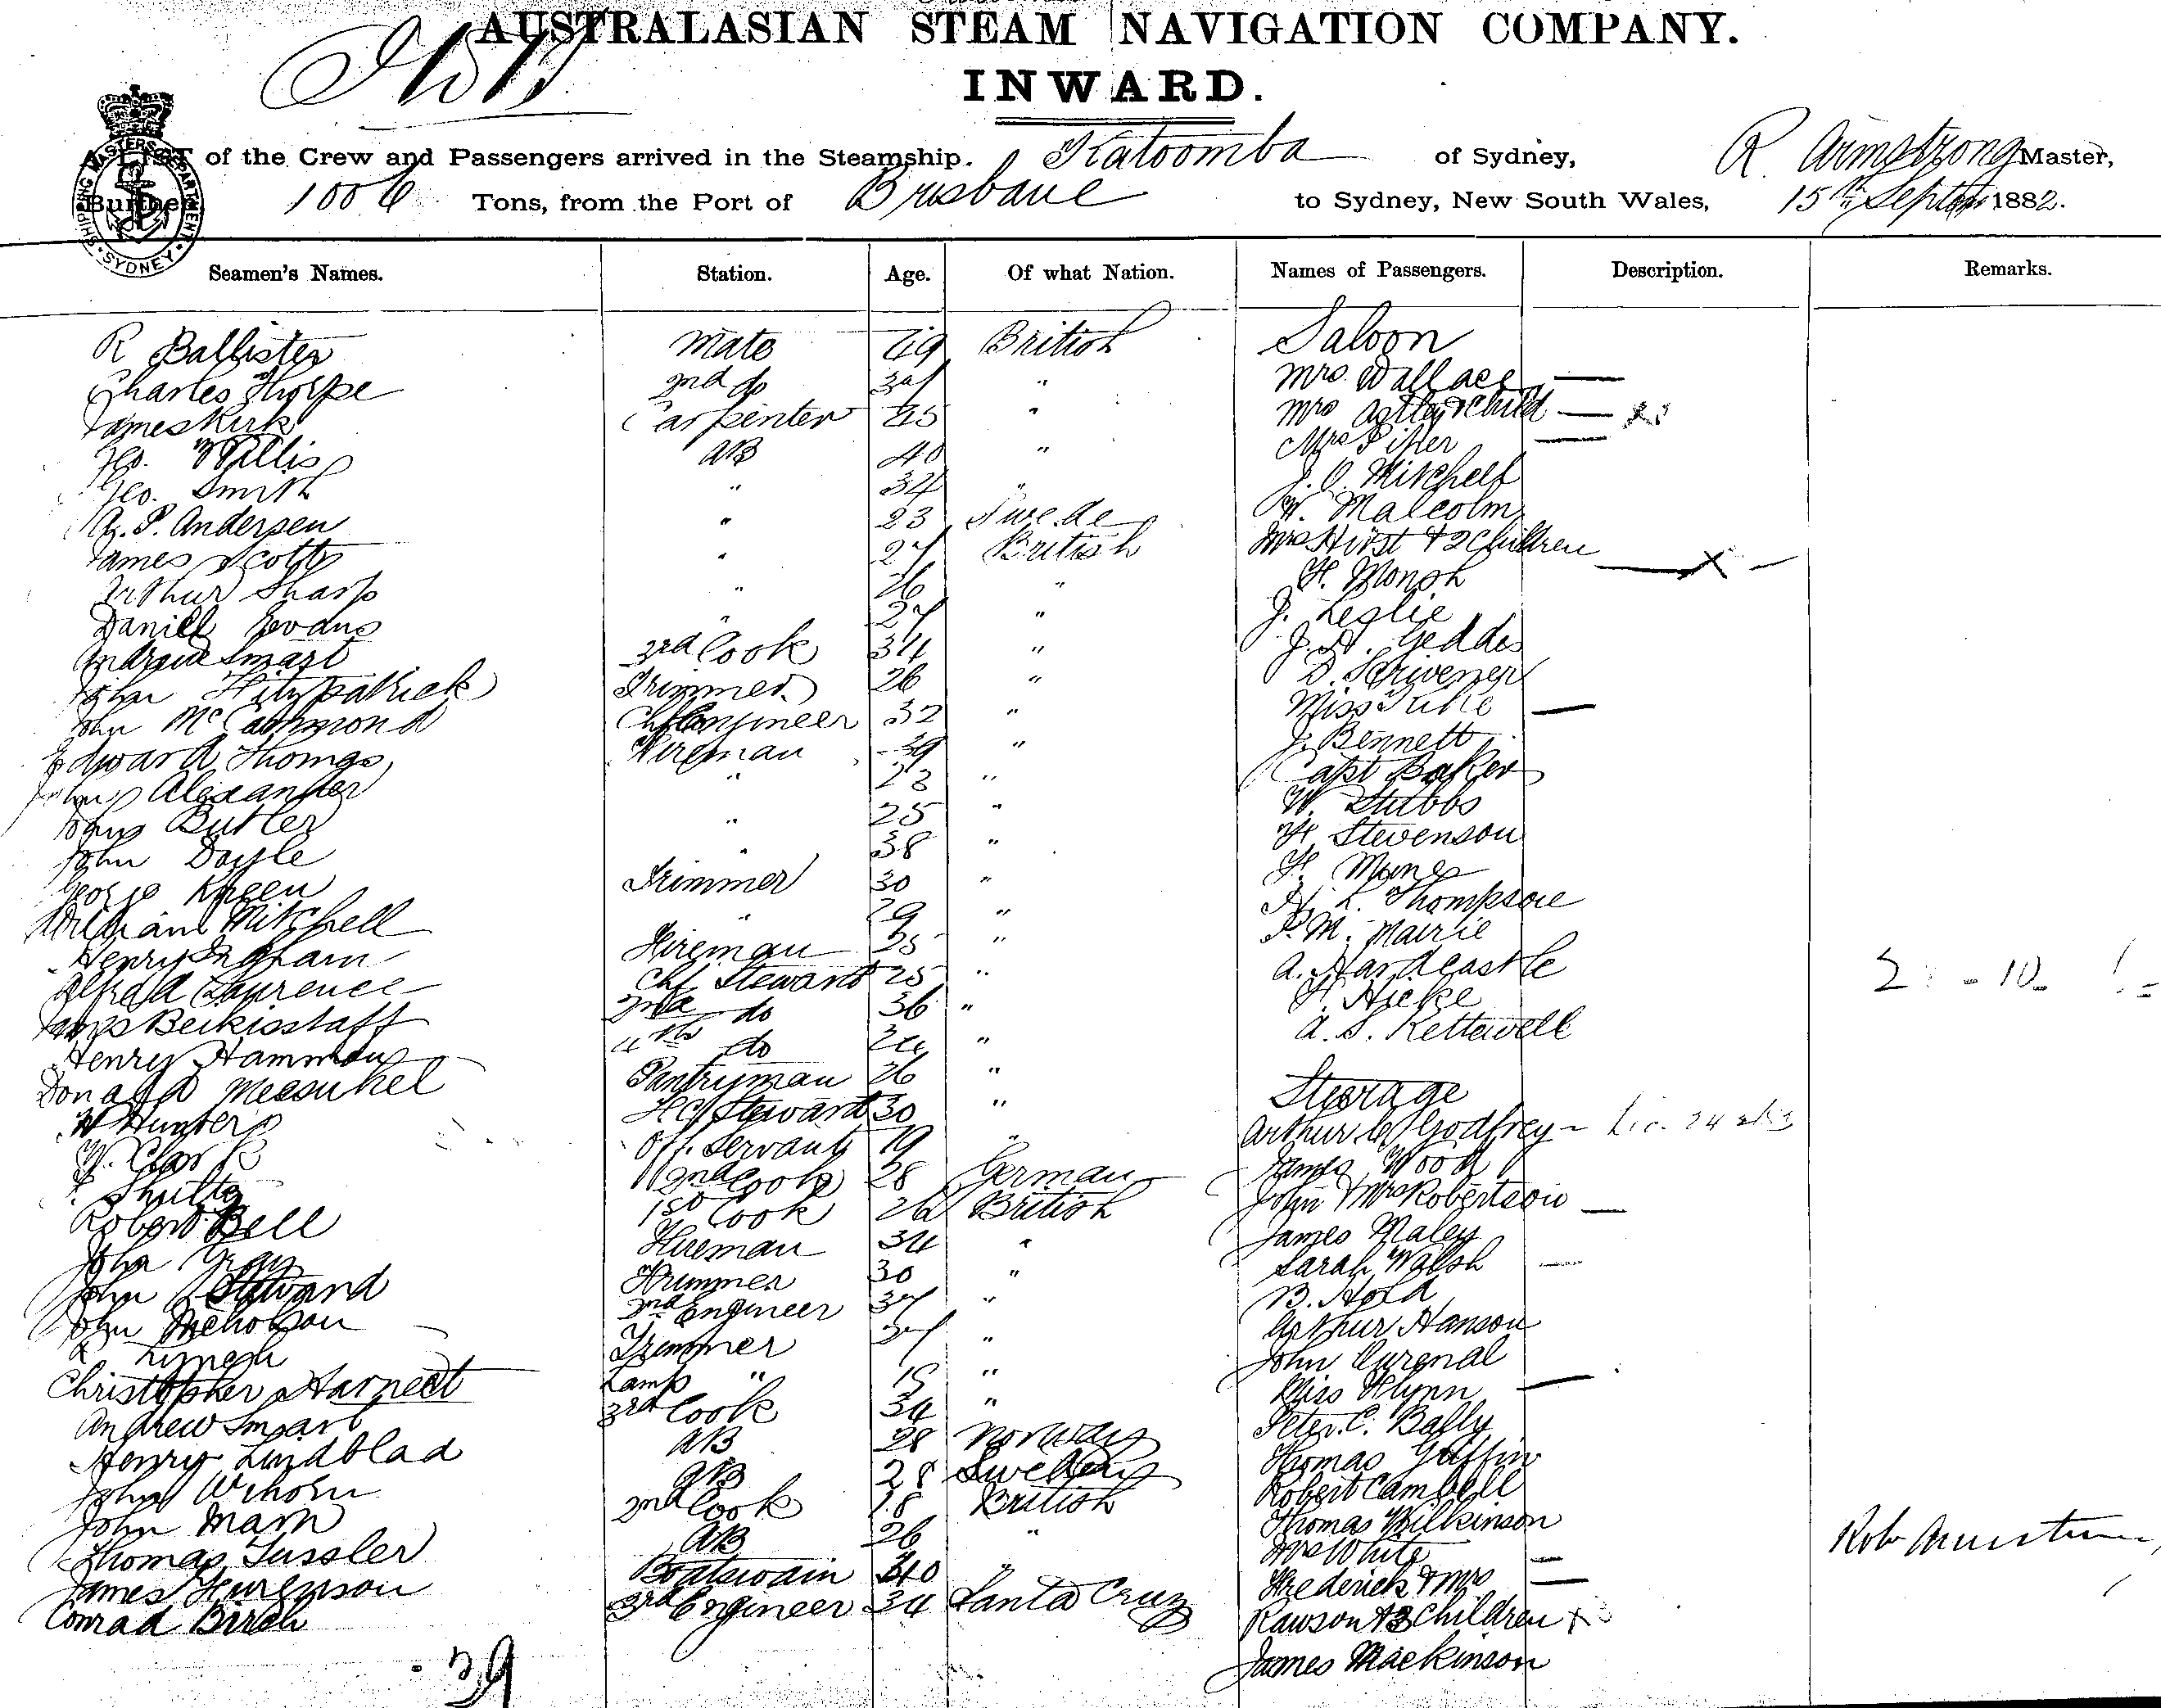 AUSTRALASIAN STEAM NAVIGATION COMPANY.
INWARD.
A LIST of the Crew and Passengers arrived in the Steamship. Katoomba of Sydney, R Armstrong Master,
Burthen 1006 Tons, from the Port of Brisbane to Sydney, New South Wales, 15th Septr 1882.
SHIPPING MASTERS DEPARTMENT SYDNEY
Seamen's Names. Station. Age. Of what Nation. Names of Passengers. Description. Remarks.
R Ballister Mate 49 British Saloon
Charles Thorpe 2nd do 34 " Mrs Wallace —
James Kirk Carpenter 45 " Mrs Astley & Child —
Geo. Willis AB 40 " Mrs Piper —
Geo. Smith " 34 " J. O. Mitchell
A. P. Andersen " 23 Swede W. Malcolm
James Scott " 27 British Mrs Hirst & 2 Children
Arthur Sharp " 26 " H. Monsh
Daniel Evans " 27 " J. Leslie
Andrew Smart 3rd Cook 34 " J. A. Geddes
John Fitzpatrick Trimmer 26 " D. Scrivener
John McCammond Chf Engineer 32 " Miss —
Edward Thomas Fireman 39 " J. Bennett
John Alexander " 23 " Capt Baker
John Butler " 25 " W. Stubbs
John Doyle " 38 " H. Stevenson
George Kneen Trimmer 30 " H. Munes
William Mitchell " 29 " A. L. Thompson
Henry Ingham Fireman 25 " P. M. Mairie
Alfred Laurence Chf Steward 25 " A. Hardcastle
James Beckisstaff 2nd do 36 " H. Hicke
Henry Hammond 4th do 24 " A. S. Kettewell
Donald Pantryman 26 " Steerage
W Hunter F C Steward 30 " Arthur Godfrey
W. Clark Off. Servant 19 " James Wood
F. Shultz 2nd Cook 28 German John & Mrs Robertson —
Robert Bell 1st Cook 26 British James Maley
John Gray Fireman 34 " Sarah Walsh —
John Steward Trimmer 30 " B. Hold
John Nicholson 2nd Engineer 37 " Arthur Hanson
R Lynch Trimmer 37 " John Curenal
Christopher Harnett Lamp " 18 " Miss Flynn —
Andrew Smart 3rd Cook 34 " Peter C. Bally
Henry Lindblad AB 28 Norway Thomas Griffin
John AB 28 Sweden Robert Cambell
John Mann 2nd Cook 18 British Thomas Wilkinson
Thomas Tussler AB 26 " Mrs White —
James Boatswain 40 " Frederick & Mrs —
Conrad Birch 3rd Engineer 34 Santa Cruz Rawson & 3 Children
James Mackinson
39